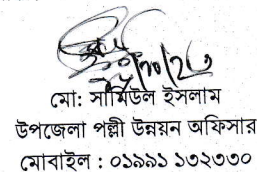 মো: সামিউল ইসলাম
উপজেলা পল্লী উন্নয়ন অফিসার
মোবাইল : ০১৯৯১ ১৩২৩৩০